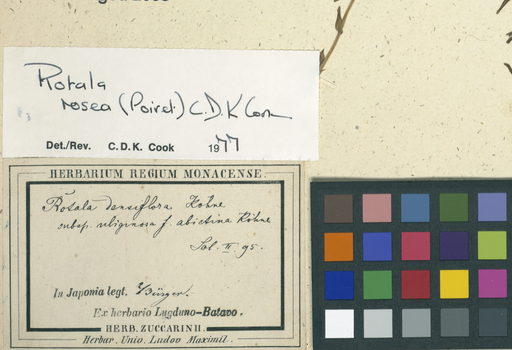 Rotala
rosea (Poiret) C.D.K Cook
Det./Rev. C. D. K. Cook 1977
HERBARIUM REGIUM MONACENSE.
Rotala densiflora Köhne
subsp. uliginosa f. abietina Köhne
II. 95.
In Japonia legt. Bürger.
Ex herbario Lugduno-Batavo.
HERB. ZUCCARINII.
Herbar. Univ. Ludov Maximil.